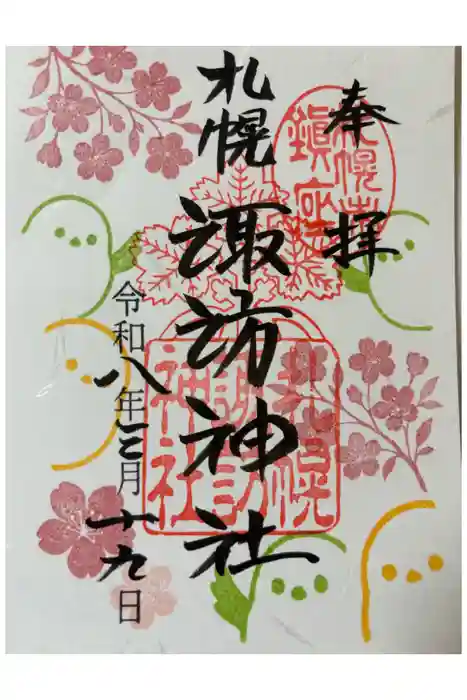 奉拝
札幌
諏訪神社
令和八年三月十九日
札幌
鎮座
札幌
諏訪
神社